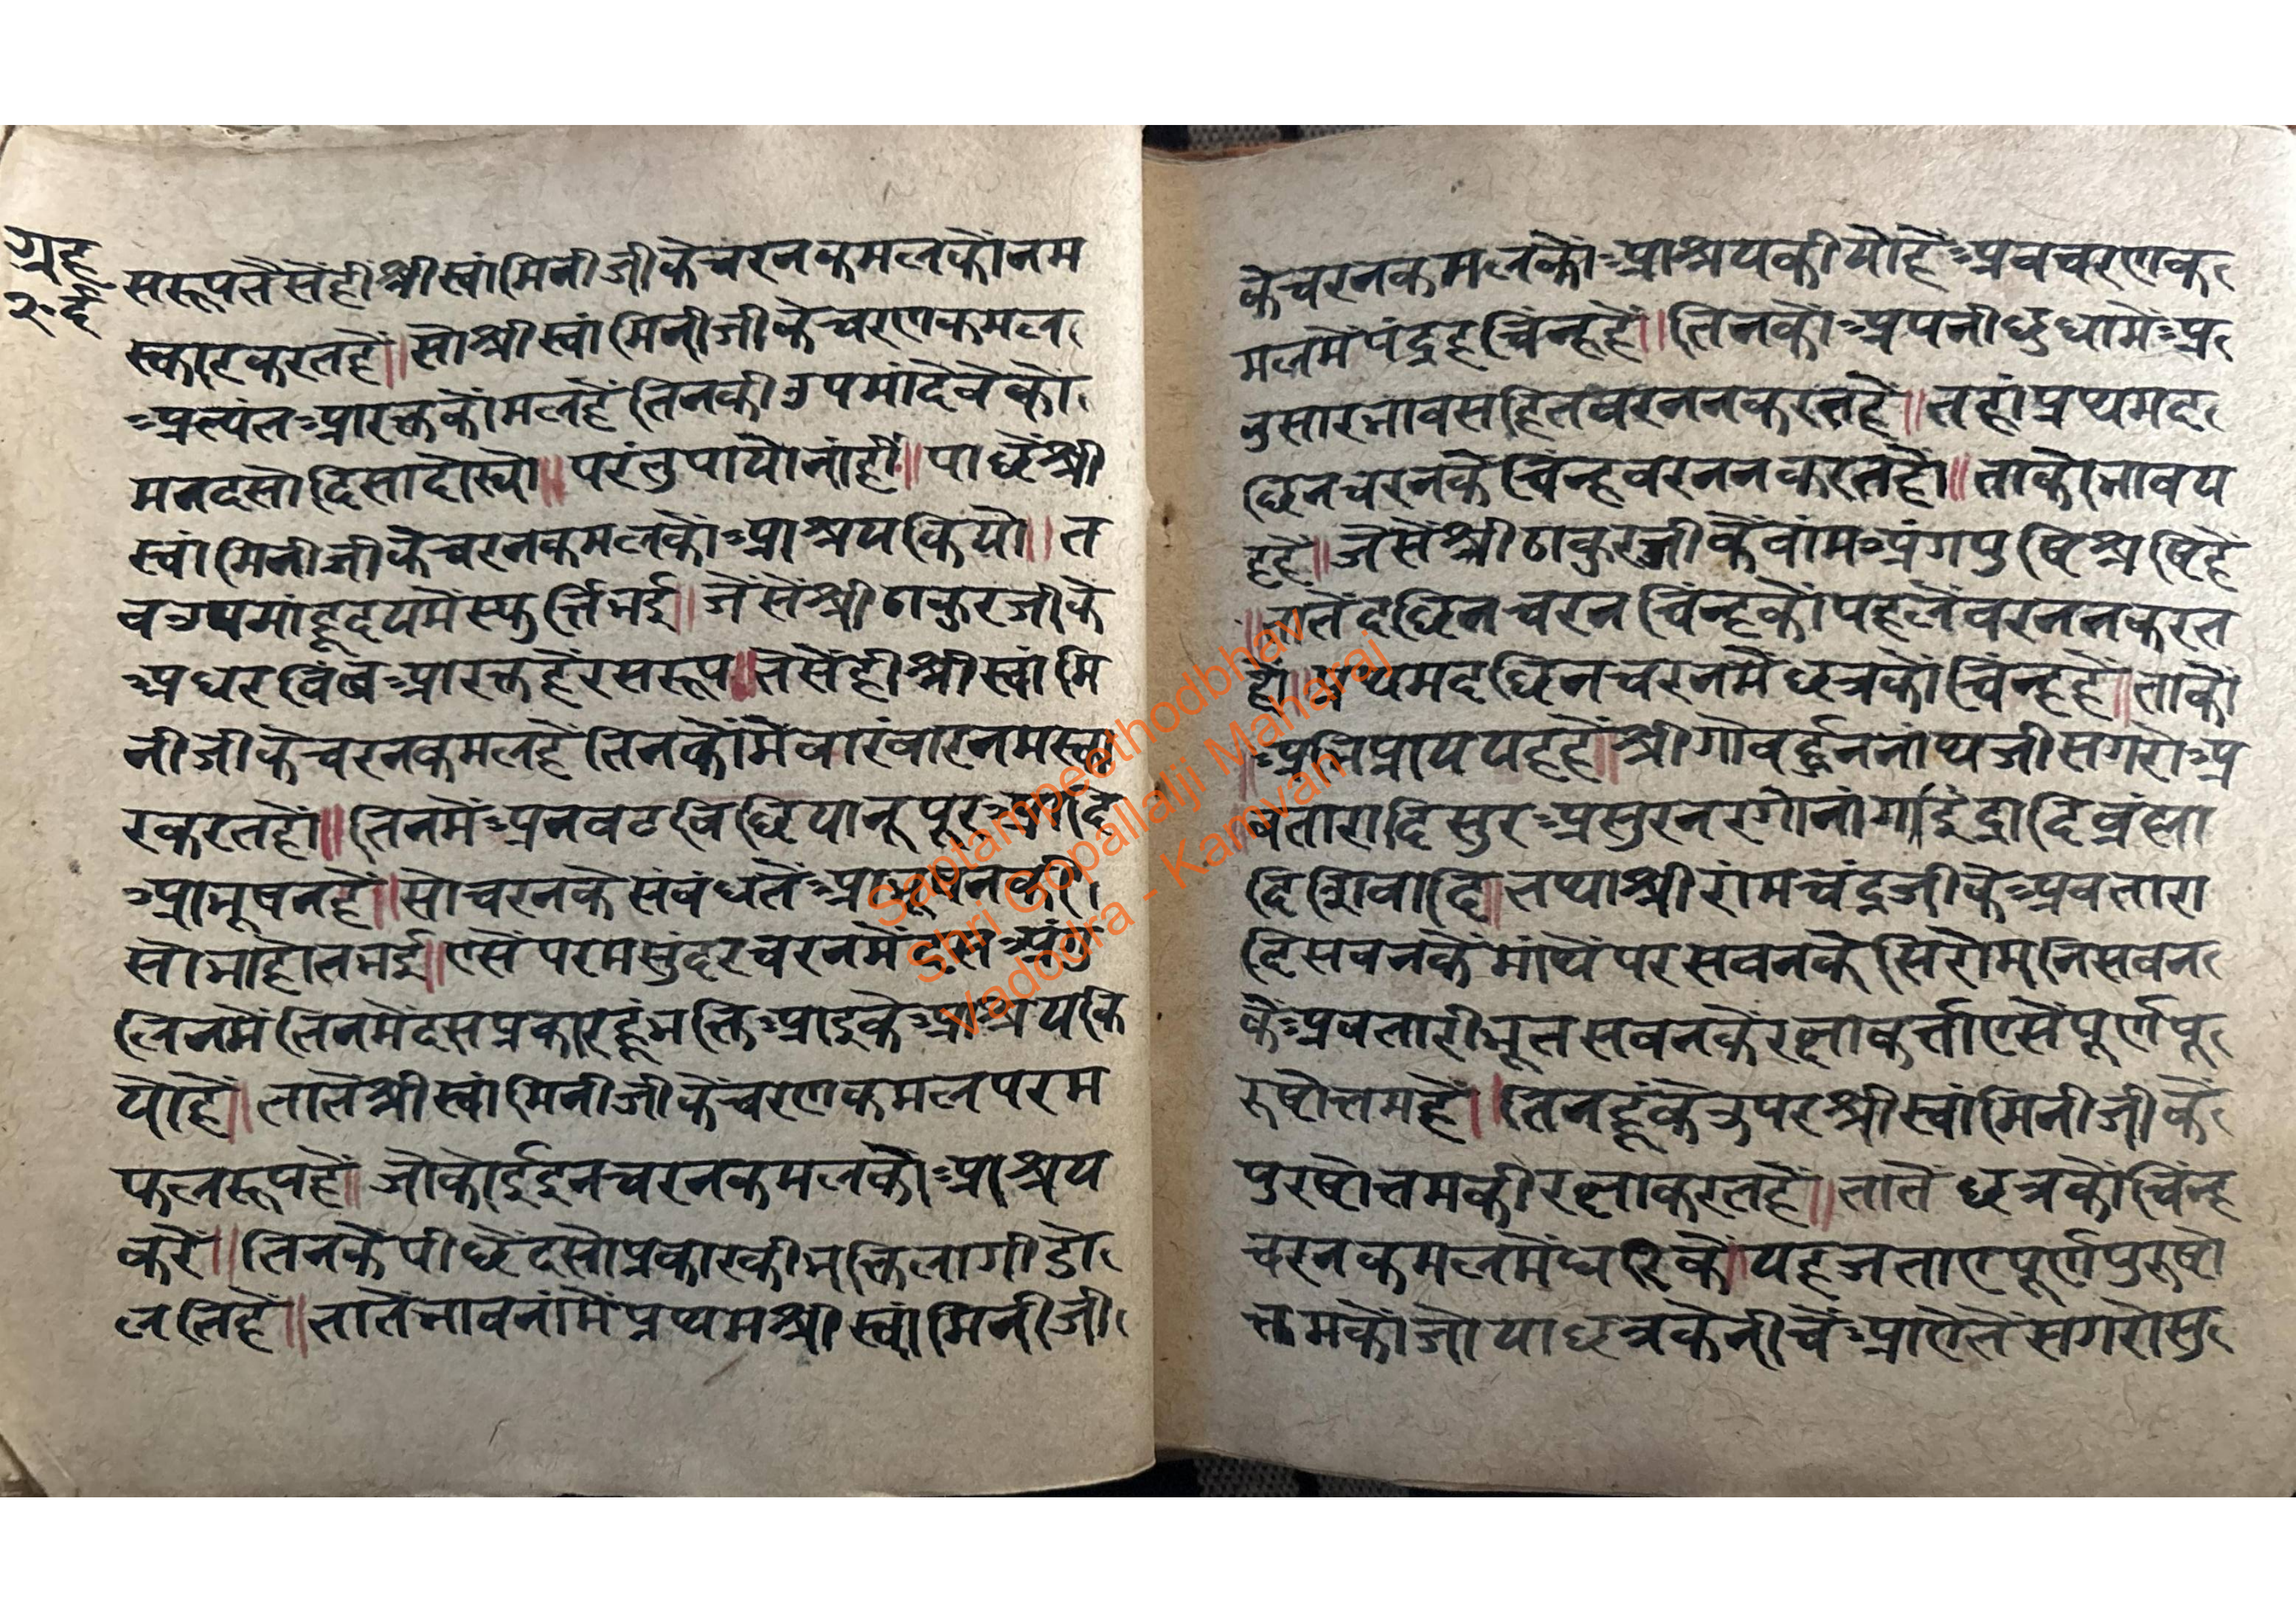 ग्रह
२॰ई
सरूपतैसेंहीश्रीस्वांमिनीजीकेचरनकमलकोंनम
स्कारकरतहों॥सोश्रीस्वांमिनीजीकेचरणकमल
अत्यंतआरक्तकोंमलहैंतिनकीउपमांदेवेकों
मनदसोदिसादोरयो॥परंतुपायोनांहीं॥पाछेंश्री
स्वांमिनीजीकेचरनकमलकोंआश्रयकियो॥त
वउपमांहृदयमेंस्फुर्त्तिभई॥जैंसैंश्रीठाकुरजीके
अधरविंबआरक्तहैंरसरूप॥तैसेंहीश्रीस्वांमि
नीजीकेचरनकमलहैंतिनकोंमैंवारंवारनमस्का
रकरतहों॥तिनमेंअनवटविछियानूपूरआदि
आभूषनहैं॥सोचरनकेसंबंधतेंआभूषनकी
सोभाहोतभई॥एसेंपरमसुंदरचरनमेंदसअंगु
लिनमेंतिनमेंदसप्रकारहूंभक्तिआइकेआश्रयकि
योहैं॥तातेंश्रीस्वांमिनीजीकेंचरणकमलपरम
फलरूपहैं॥जोकोईइनचरनकमलकोआश्रय
करें॥तिनकेंपीछेंदसोप्रकारकीभक्तिलागीडो
लतिहैं॥तातेंभावनांमेंप्रथमश्रीस्वांमिनीजी
केचरनकमलकोंआश्रयकीयोहैंअवचरणक
मलमेंपंद्रहचिंन्हहैं॥तिनकोंअपनीबुधीमेंअ
नुसारभावसहितवरननकरतहै॥तहांप्रथमद
छिनचरनकेचिंन्हवरननकरतहों॥ताकोभावय
हहैं॥जैसेंश्रीठाकुरजीकेंवांमअंगपुष्टिश्रष्टिहैं
॥तातेंदछिनचरनचिंन्हकोंपहलेंवरननकरत
हों॥प्रथमदछिनचरनमेंछत्रकोंचिंन्हहैं॥ताकों
अभिप्राययहहैं॥श्रीगोवर्द्धननांथजीसगरोअ
वतारादिसुरअसुरनरगोनांगाइंद्रादिब्रंह्मा
दिशिवादि॥तथाश्रीरांमचंद्रजीकेअवतारा
दिसवनकेंमांथेंपरसवनकेसिरोमनिसवन
केंअवतारीभूतसवनकेंरक्षाकर्त्ताएसेंपूर्णपू
रुषोत्तमहैं॥तिनहूंकेउपरश्रीस्वांमिनीजीकें
पुरषोत्तमकीरक्षाकरतहैं॥तातेंछत्रकोंचिंन्ह
चरनकमलमेंधारिकें॥यहजताएपूर्णपुरुषो
त्तमकोंजोयाछत्रकेनीचेंआऐतेंसगरोसु
Saptampeethodbhav
Shri Gopallalji Maharaj
Vadodra - Kamvan